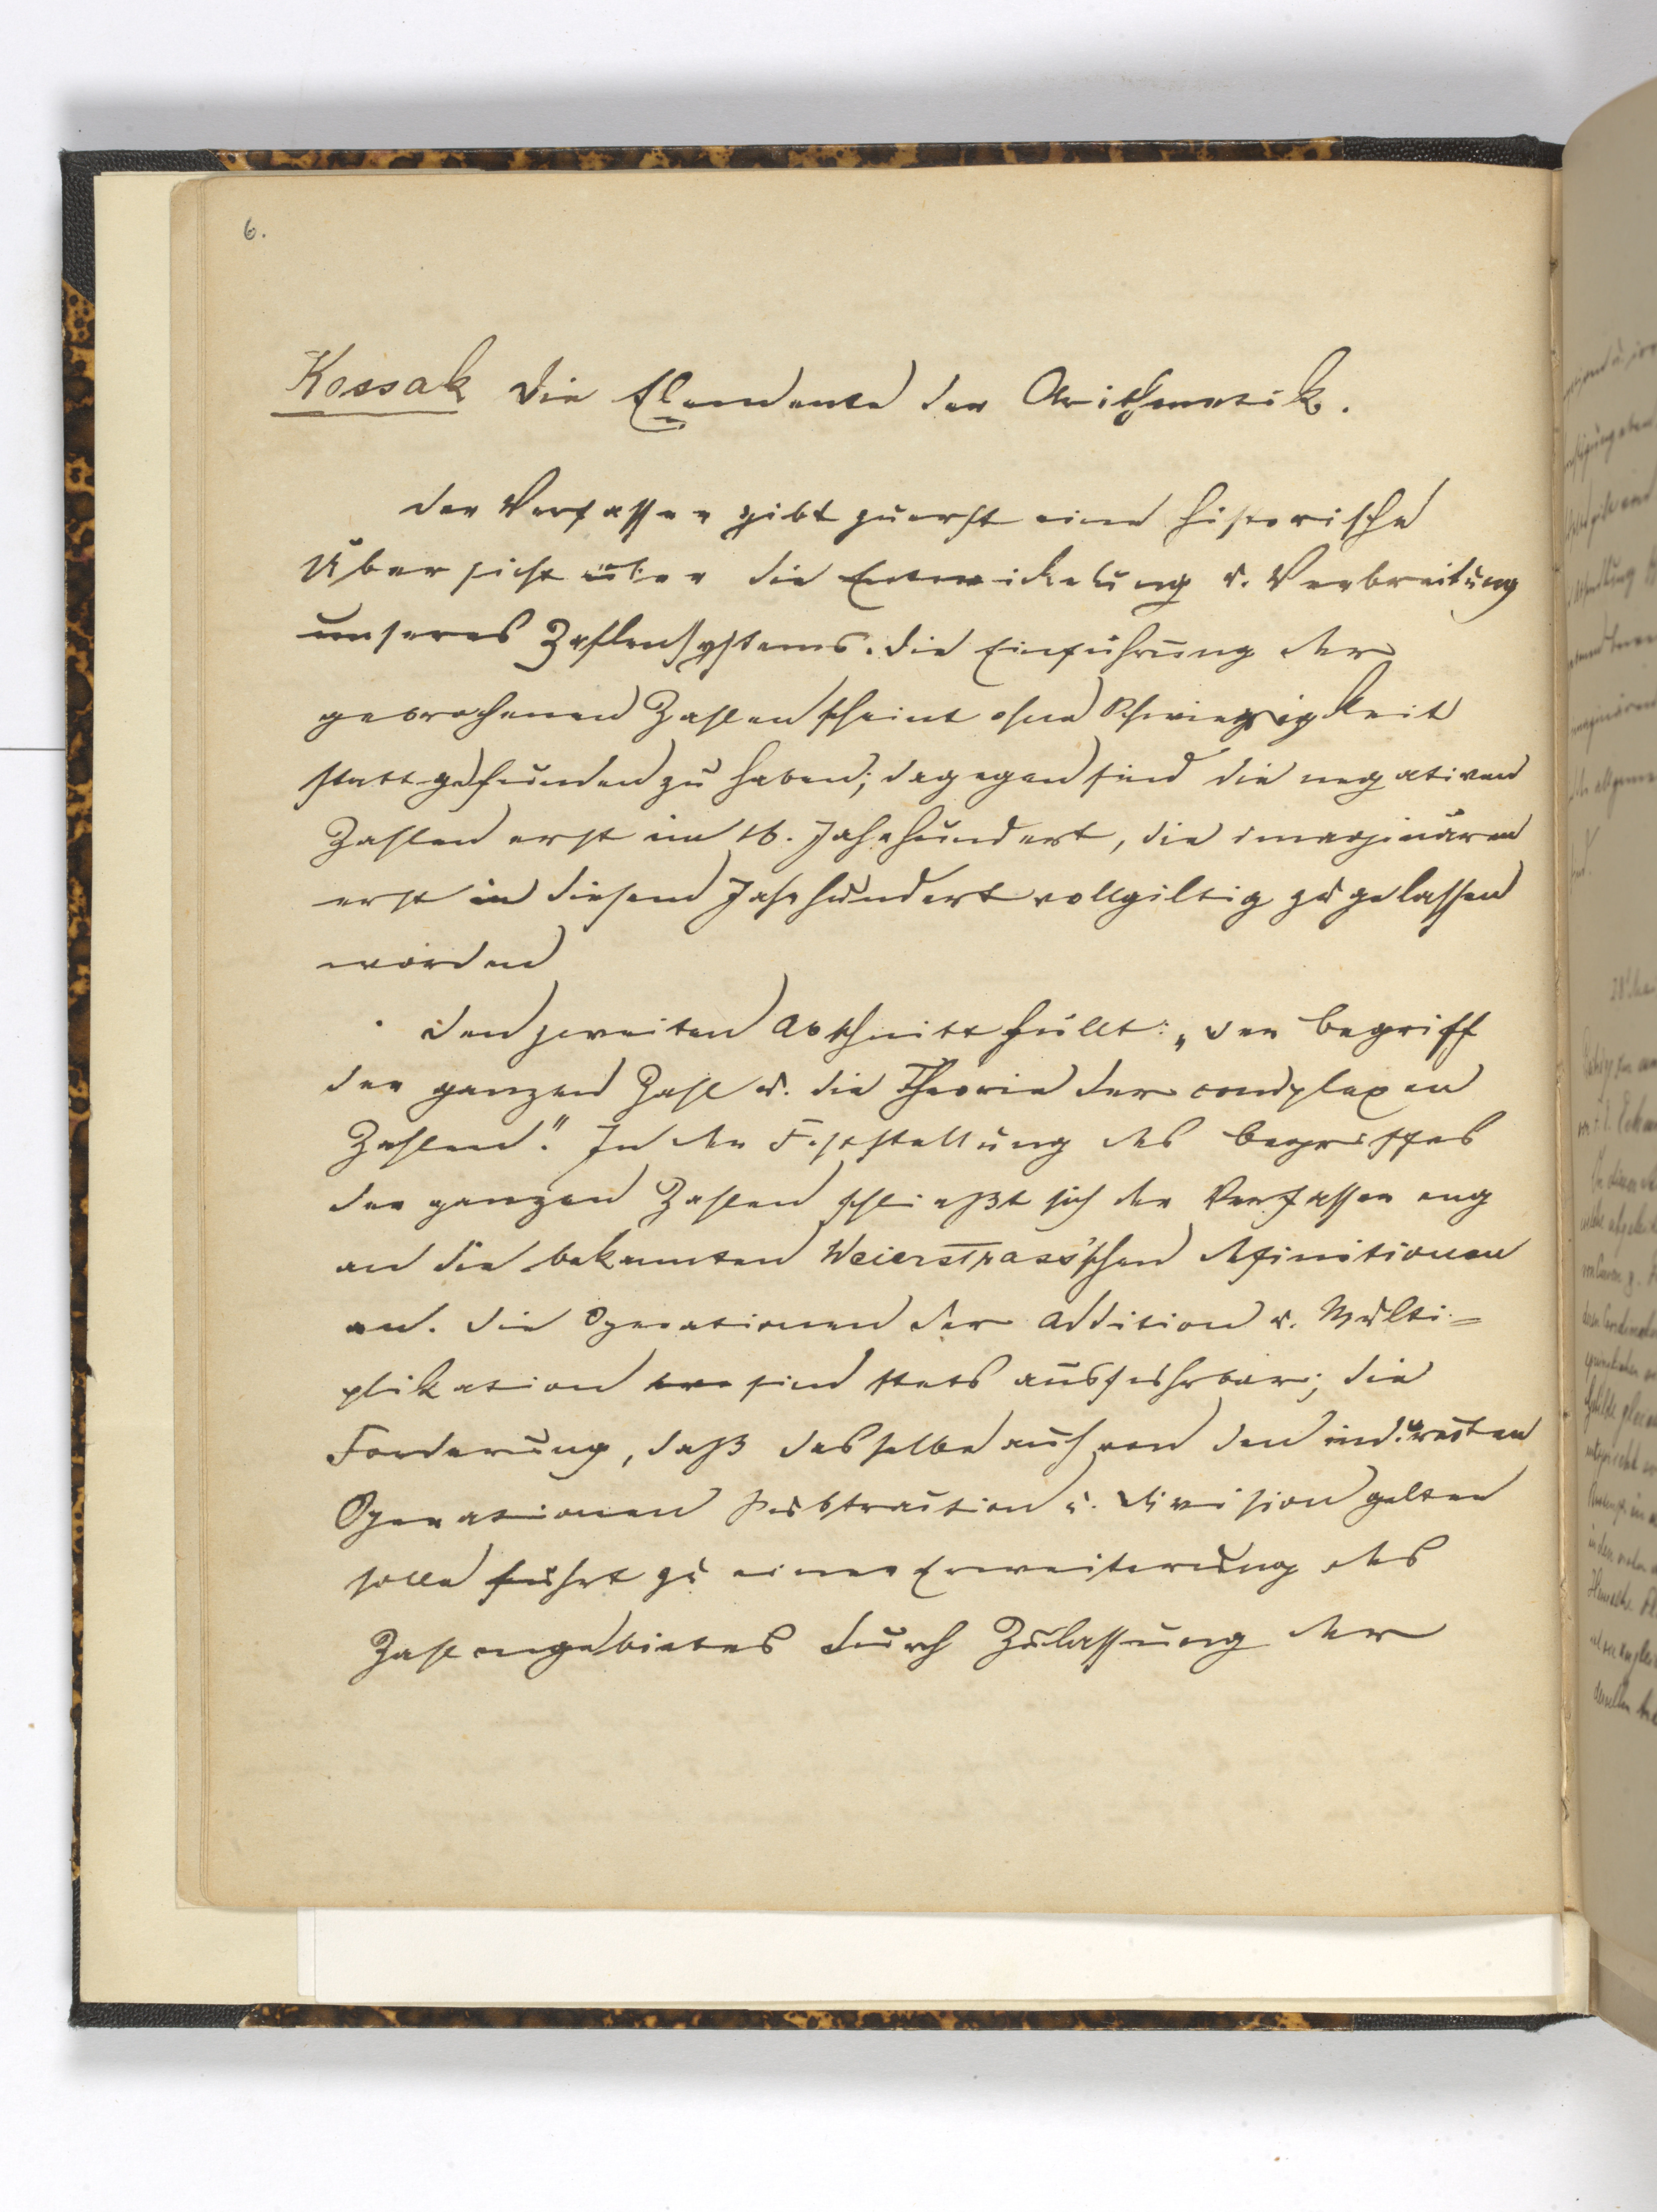 6.
Kossak Die Elemente der Arithmetik.
Der Verfasser gibt zuerst eine historische
Übersicht über die Entwickelung u. Verbreitung
unseres Zahlensystems. Die Einführung der
gebrochenen Zahlen scheint ohne Schwierigkeit
stattgefunden zu haben; dagegen sind die negativen
Zahlen erst im 16. Jahrhundert, die imaginären
erst in diesem Jahrhundert vollgiltig zugelassen
worden
Den zweiten Abschnitt füllt: „Der Begriff
der ganzen Zahl u. die Theorie der complexen
Zahlen." In der Feststellung des Begriffes
der ganzen Zahlen schließt sich der Verfasser eng
an die bekannten Weierstrass'schen Definitionen
an. Die Operationen der Addition u. Multi=
plikation sind stets ausführbar; die
Forderung, daß dasselbe auch von den indirecten
Operationen Subtraction u. Division gelten
solle führt zu einer Erweiterung des
Zahlengebietes durch Zulassung der